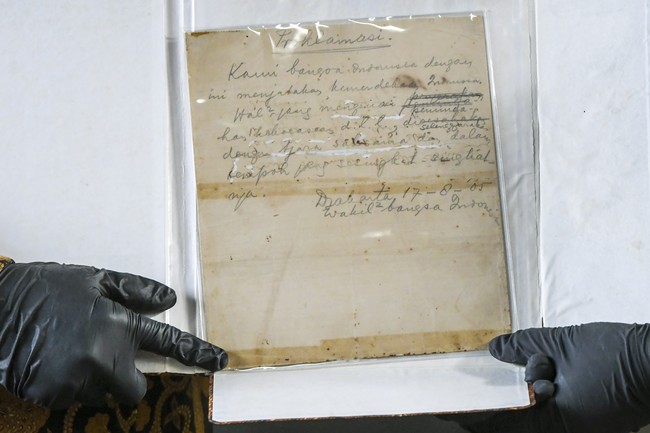 Proklamasi.
Kami bangsa Indonesia dengan
ini menjatakan kemerdekaan Indonesia
Hal² jang mengenai peminda-
han kekoeasaan d.l.l., diselenggarakan
dengan tjara saksama dan dalam
tempoh jang sesingkat-singkat
nja.
Djakarta 17-8-'05
Wakil² bangsa Indonesia